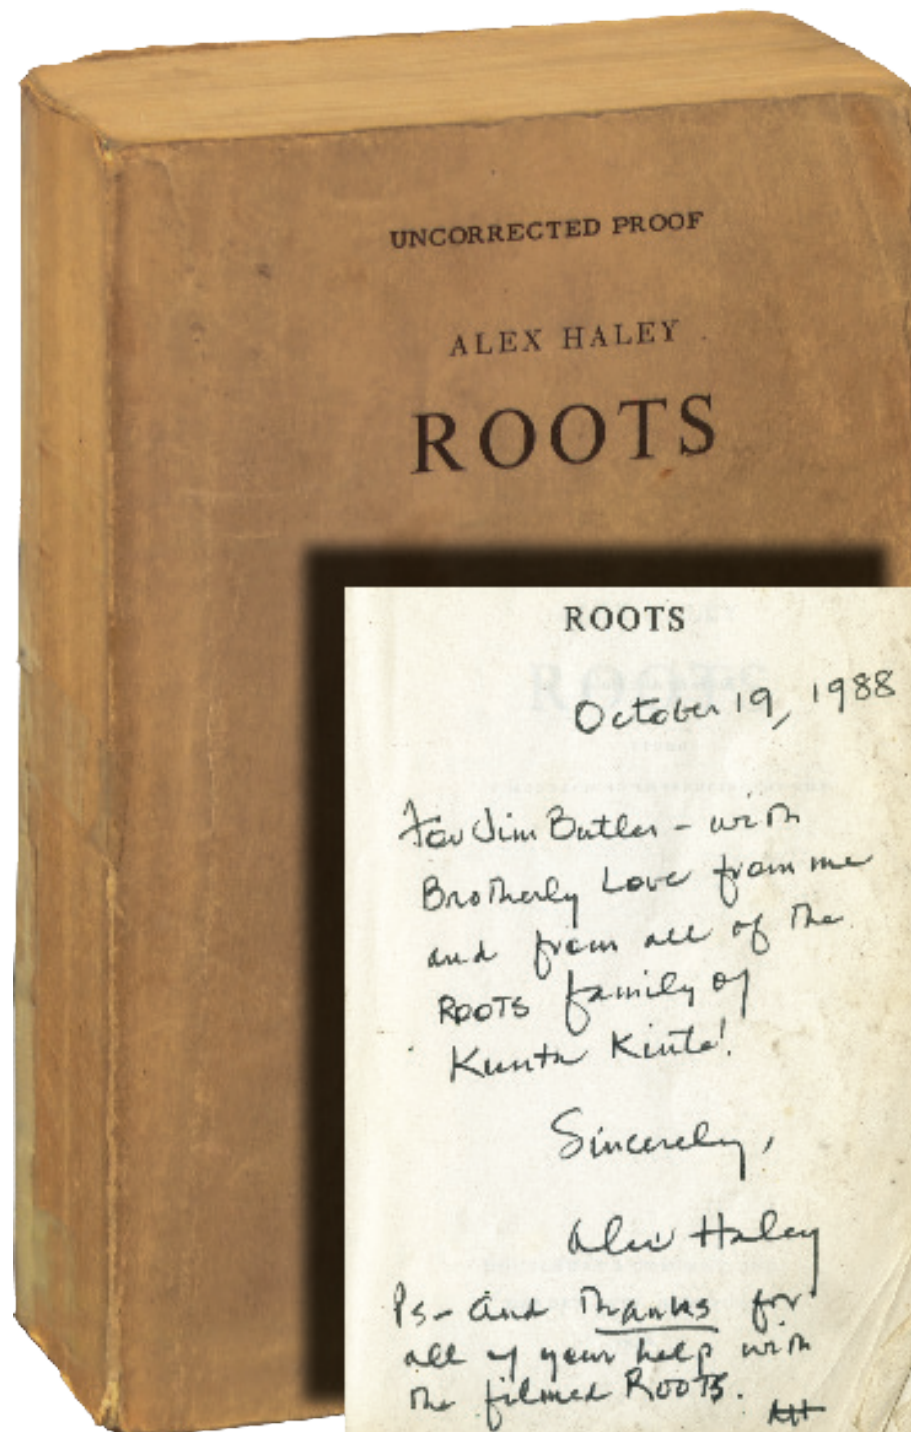 UNCORRECTED PROOF
ALEX HALEY
ROOTS
ROOTS
October 19, 1988
For Jim Butler - with
Brotherly Love from me
and from all of the
ROOTS family of
Kunta Kinte!
Sincerely,
Alex Haley
Ps- And Thanks for
all of your help with
the filmed ROOTS.
AH